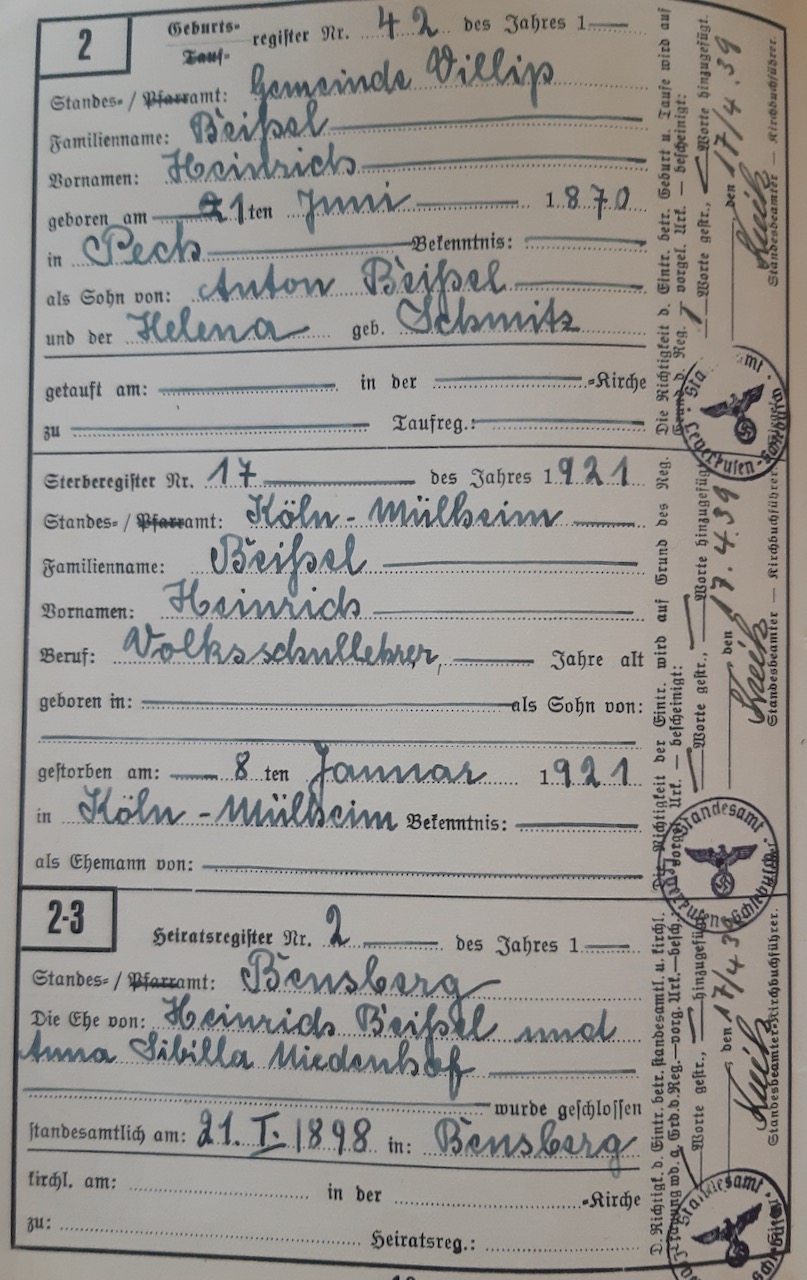 2
Geburts-
Tauf-
register Nr. 42 des Jahres 1
Standes- / Pfarramt: Gemeinde Villip
Familienname: Beißel
Vornamen: Heinrich
geboren am 21ten Juni 1870
in Pech Bekenntnis:
als Sohn von: Anton Beißel
und der Helena geb. Schmitz
getauft am: in der -Kirche
zu Taufreg.:
Die Richtigkeit d. Eintr. betr. Geburt u. Taufe wird auf
Grund d. Reg. vorgel. Urk. — bescheinigt:
Worte gestr., Worte hinzugefügt.
den 17/4.39
Standesbeamter — Kirchbuchführer.
Sterberegister Nr. 17 des Jahres 1921
Standes- / Pfarramt: Köln-Mülheim
Familienname: Beißel
Vornamen: Heinrich
Beruf: Volksschullehrer, Jahre alt
geboren in: als Sohn von:
gestorben am: 8 ten Januar 1921
in Köln-Mülheim Bekenntnis:
als Ehemann von:
Die Richtigkeit der Eintr. wird auf Grund des Reg.
vorgel. Urk. — bescheinigt:
Worte gestr., Worte hinzugefügt
den 17.4.39
Standesbeamter — Kirchbuchführer.
Standesamt
2-3
Heiratsregister Nr. 2 des Jahres 1
Standes- / Pfarramt: Bensberg
Die Ehe von: Heinrich Beißel und
Anna Sibilla Miedenhof
wurde geschlossen
standesamtlich am: 21. I. 1898 in: Bensberg
kirchl. am: in der -Kirche
zu: Heiratsreg.:
D. Richtigk. d. Eintr. betr. standesamtl. u. kirchl.
Trauung wd. a. Grd. d. Reg.—vorg. Urk.—besch.:
Worte gestr., hinzugefügt
den 17/4 39
Standesbeamter-Kirchbuchführer.
Standesamt